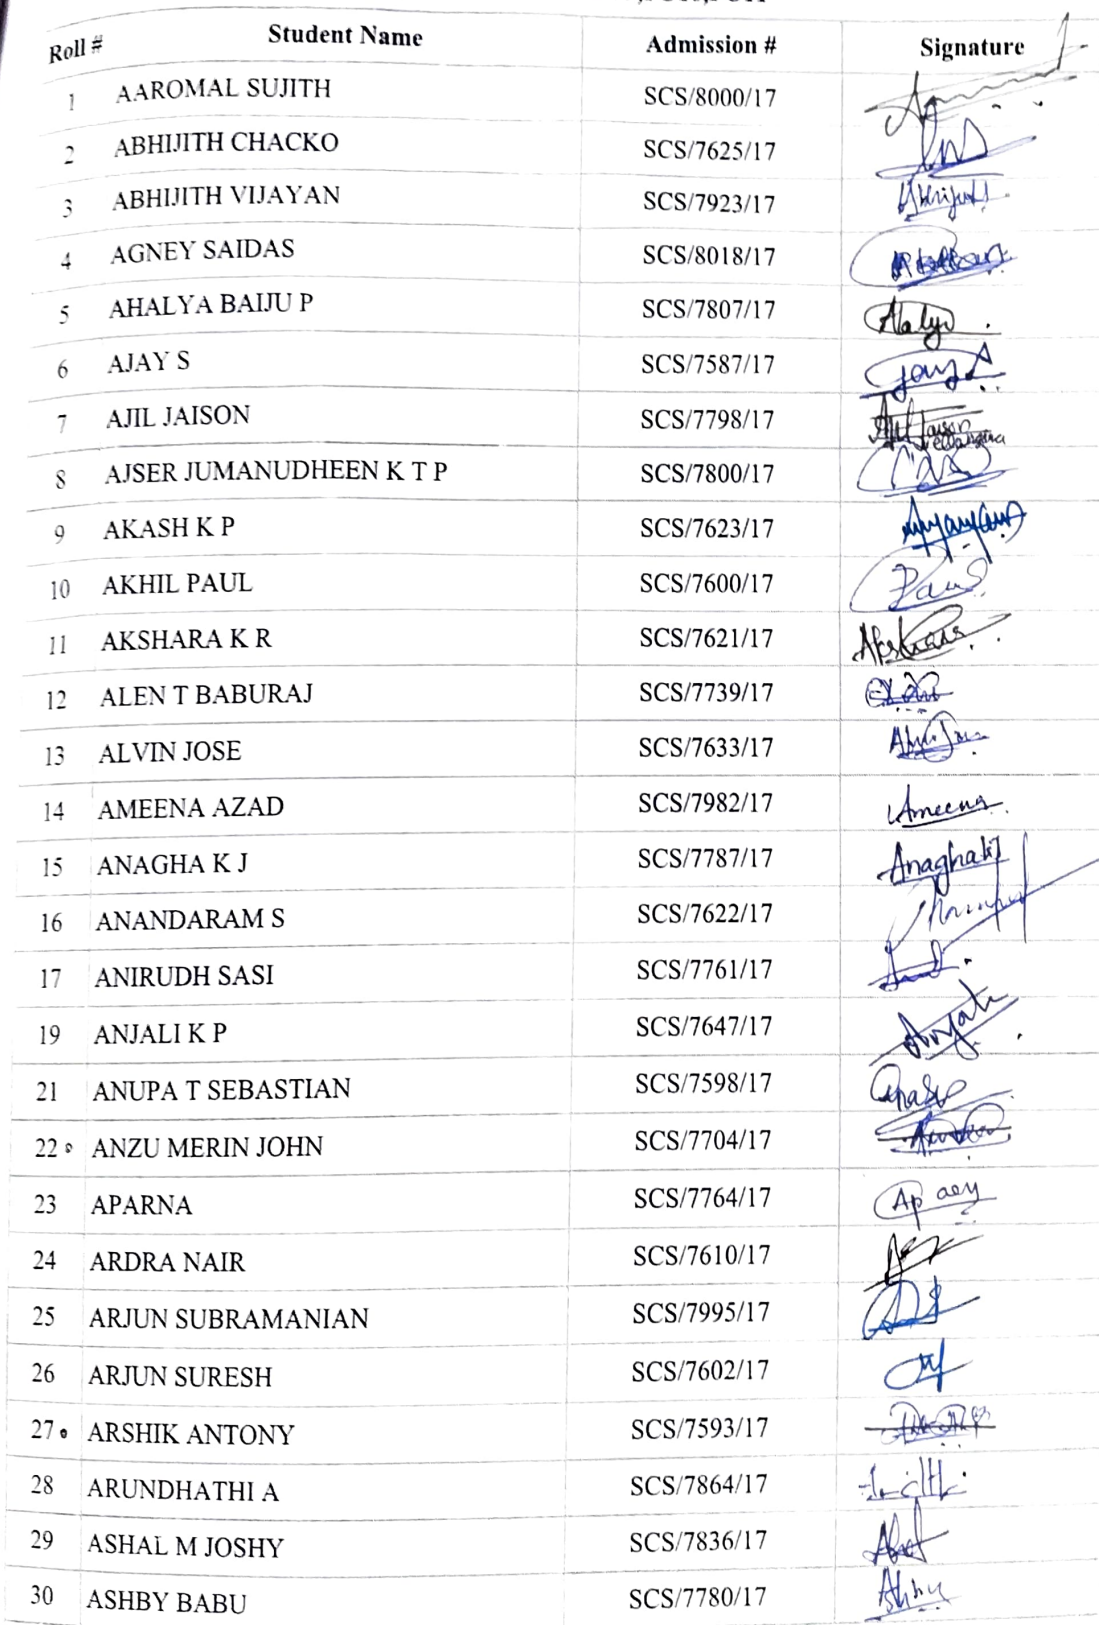 Roll # Student Name Admission # Signature
1 AAROMAL SUJITH SCS/8000/17
2 ABHIJITH CHACKO SCS/7625/17
3 ABHIJITH VIJAYAN SCS/7923/17
4 AGNEY SAIDAS SCS/8018/17
5 AHALYA BAIJU P SCS/7807/17
6 AJAY S SCS/7587/17
7 AJIL JAISON SCS/7798/17
8 AJSER JUMANUDHEEN K T P SCS/7800/17
9 AKASH K P SCS/7623/17
10 AKHIL PAUL SCS/7600/17
11 AKSHARA K R SCS/7621/17
12 ALEN T BABURAJ SCS/7739/17
13 ALVIN JOSE SCS/7633/17
14 AMEENA AZAD SCS/7982/17 Ameena
15 ANAGHA K J SCS/7787/17 Anagha KJ
16 ANANDARAM S SCS/7622/17
17 ANIRUDH SASI SCS/7761/17
19 ANJALI K P SCS/7647/17
21 ANUPA T SEBASTIAN SCS/7598/17
22 ANZU MERIN JOHN SCS/7704/17
23 APARNA SCS/7764/17
24 ARDRA NAIR SCS/7610/17
25 ARJUN SUBRAMANIAN SCS/7995/17
26 ARJUN SURESH SCS/7602/17
27 ARSHIK ANTONY SCS/7593/17
28 ARUNDHATHI A SCS/7864/17
29 ASHAL M JOSHY SCS/7836/17
30 ASHBY BABU SCS/7780/17